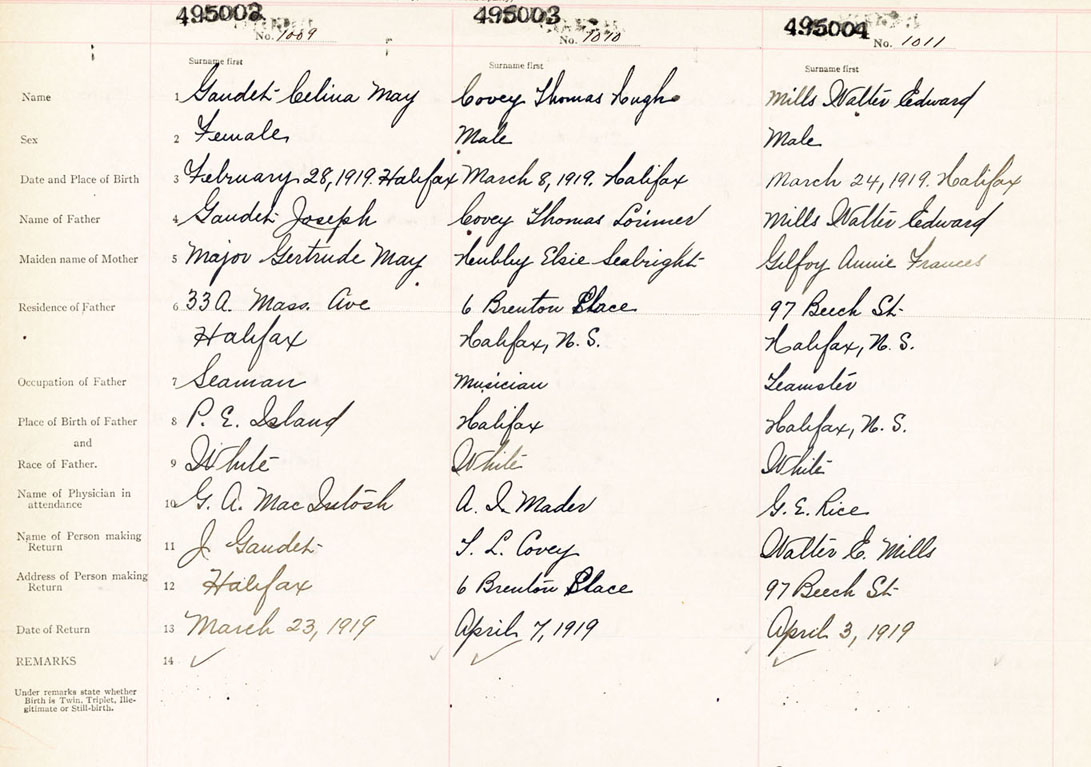 495002 495003 495004
No. 1009 No. 1010 No. 1011
Surname first Surname first Surname first
Name 1 Gaudet Celina May Covey Thomas Hugh Mills Walter Edward
Sex 2 Female Male Male
Date and Place of Birth 3 February 28, 1919. Halifax March 8, 1919. Halifax March 24, 1919. Halifax
Name of Father 4 Gaudet Joseph Covey Thomas Lorimer Mills Walter Edward
Maiden name of Mother 5 Major Gertrude May Hubbley Elsie Seabright Gilfoy Annie Frances
Residence of Father 6 33A. Mass. Ave 6 Brenton Place 97 Beech St.
Halifax Halifax, N. S. Halifax, N. S.
Occupation of Father 7 Seaman Musician Teamster
Place of Birth of Father 8 P. E. Island Halifax Halifax, N. S.
and
Race of Father. 9 White White White
Name of Physician in attendance 10 G. A. MacIntosh A. I. Mader G. E. Rice
Name of Person making Return 11 J. Gaudet T. L. Covey Walter E. Mills
Address of Person making Return 12 Halifax 6 Brenton Place 97 Beech St.
Date of Return 13 March 23, 1919 April 7, 1919 April 3, 1919
REMARKS 14
Under remarks state whether
Birth is Twin, Triplet, Ille-
gitimate or Still-birth.